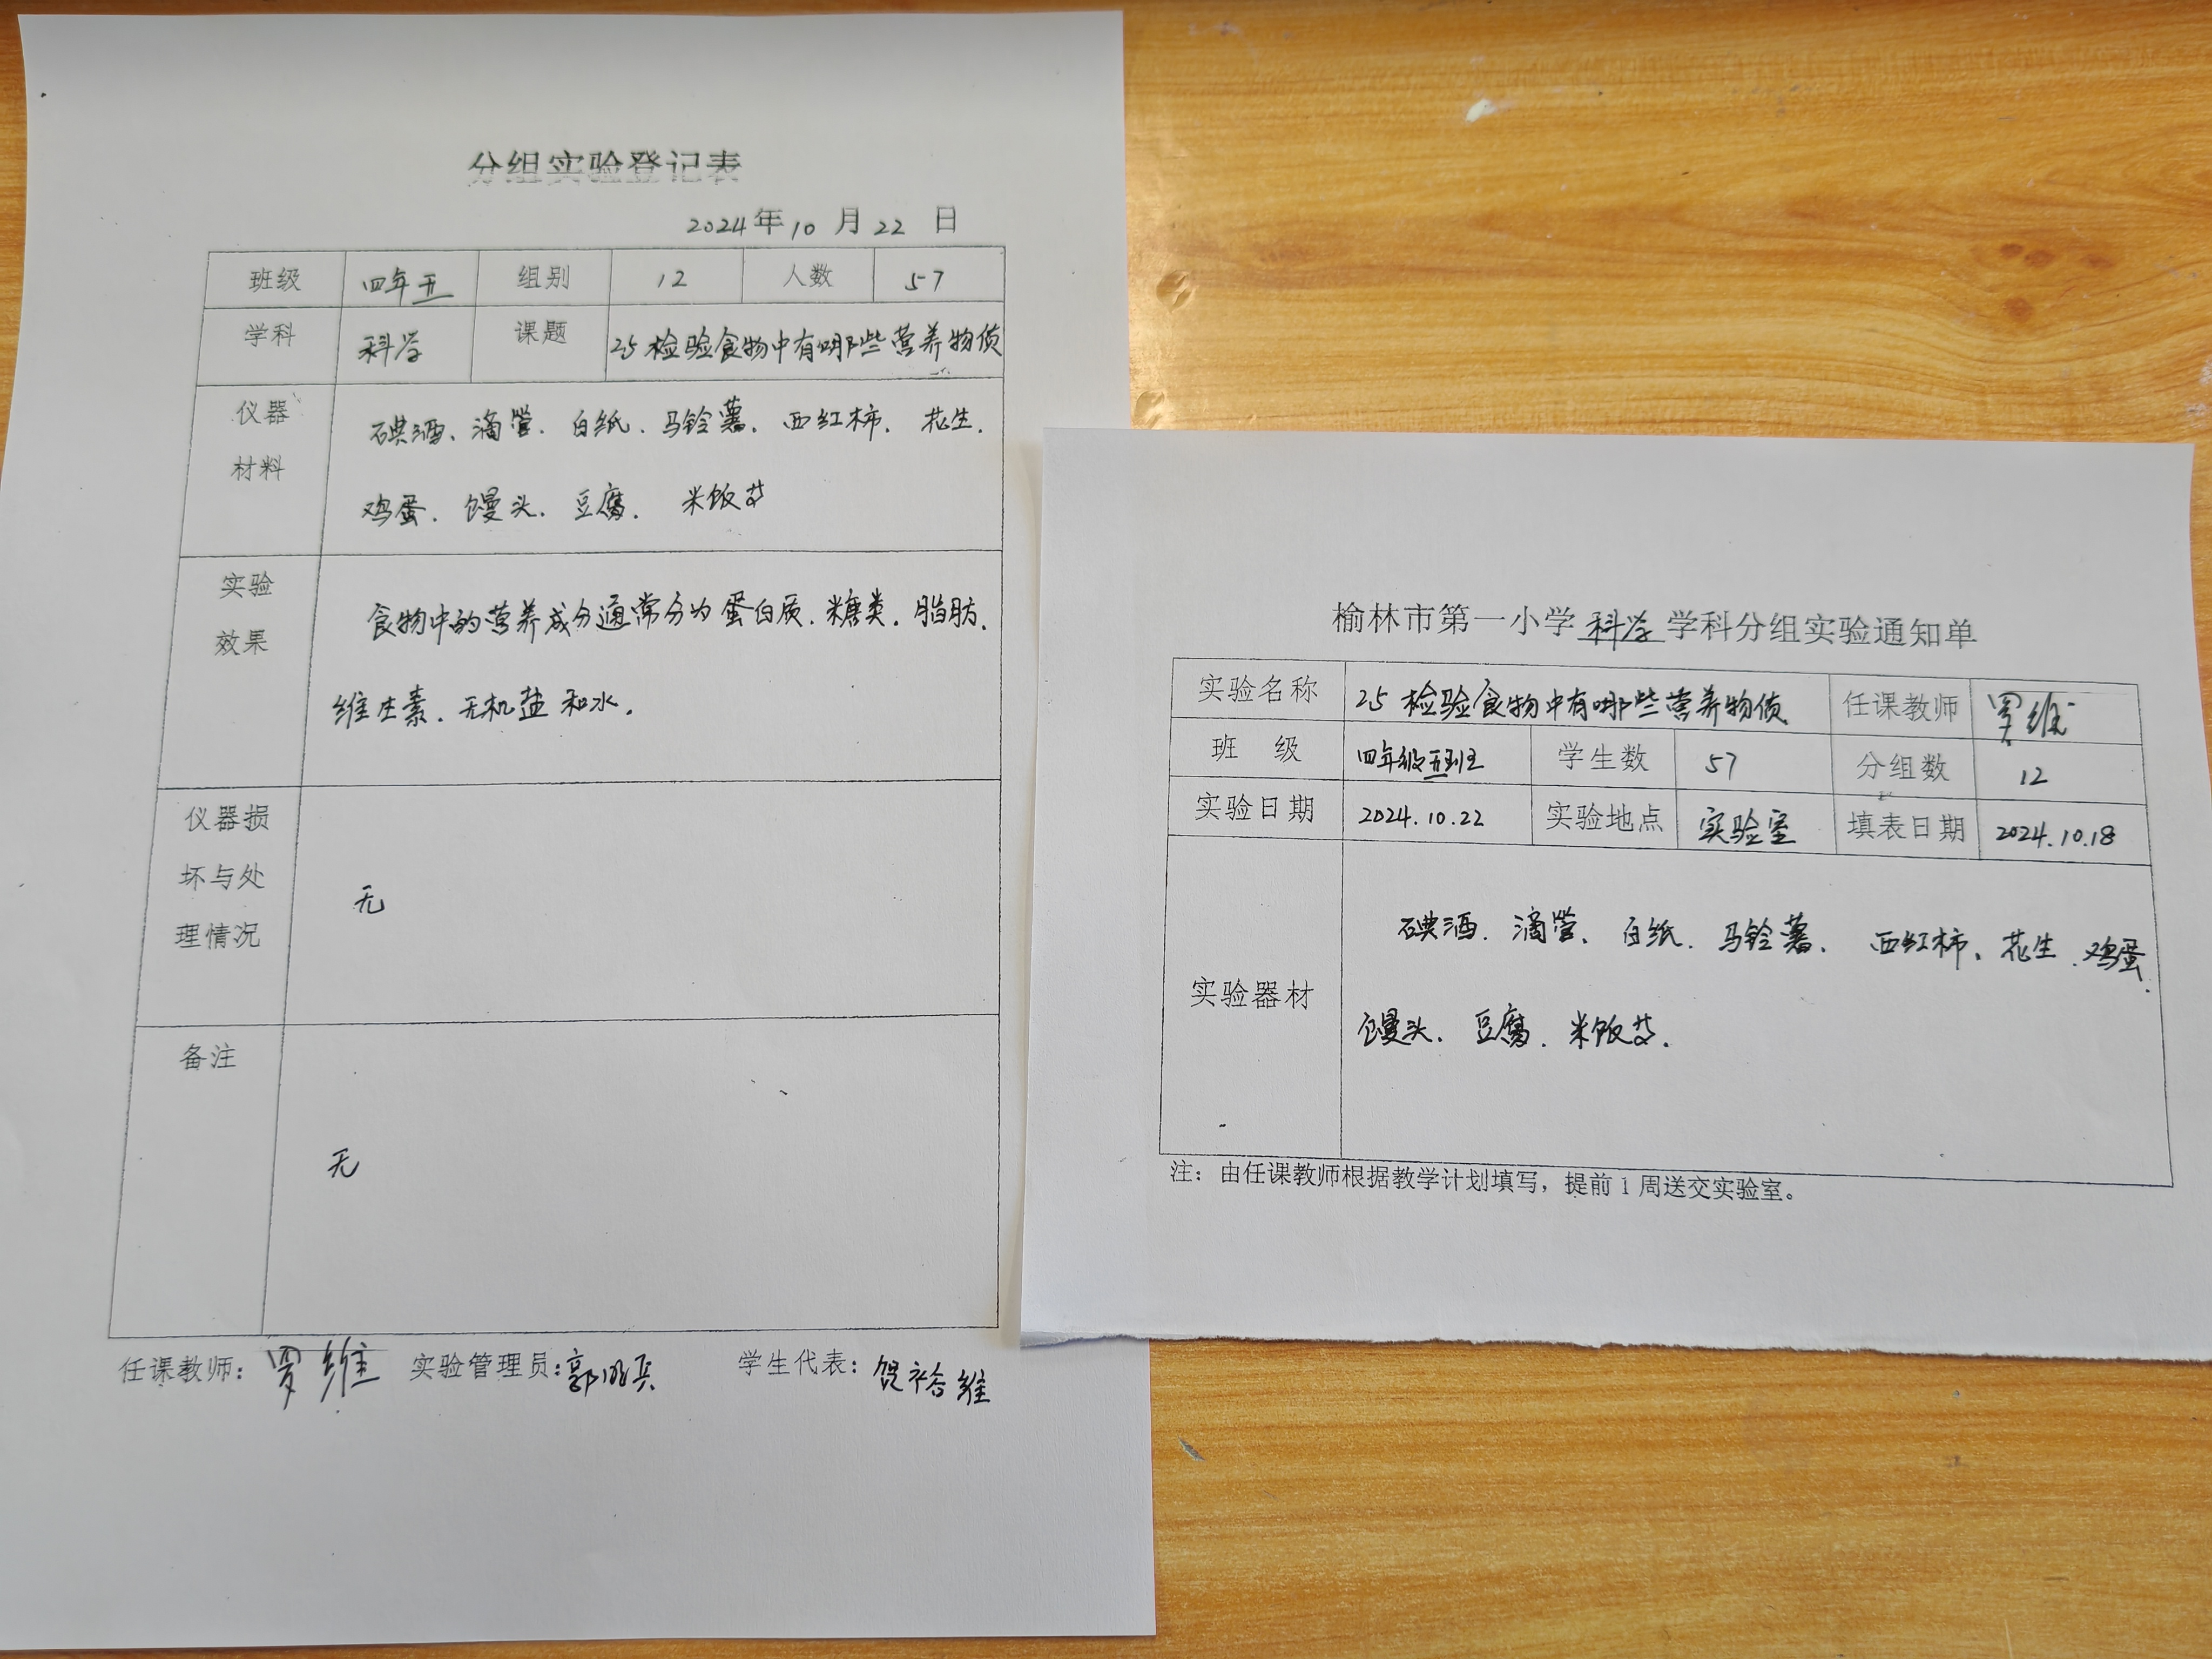 分组实验登记表
2024年10月22日
班级 四年五 组别 12 人数 57
学科 科学 课题 25 检验食物中有哪些营养物质
仪器 碘酒、滴管、白纸、马铃薯、西红柿、花生、
材料 鸡蛋、馒头、豆腐、米饭等
实验 食物中的营养成分通常分为蛋白质、糖类、脂肪、
效果 维生素、无机盐和水。
仪器损
坏与处 无
理情况
备注
无
任课教师: 罗维 实验管理员: 学生代表: 贺裕维
榆林市第一小学科学学科分组实验通知单
实验名称 25 检验食物中有哪些营养物质 任课教师 罗维
班 级 四年级五班 学生数 57 分组数 12
实验日期 2024.10.22 实验地点 实验室 填表日期 2024.10.18
碘酒、滴管、白纸、马铃薯、西红柿、花生、鸡蛋、
实验器材
馒头、豆腐、米饭等。
注：由任课教师根据教学计划填写，提前1周送交实验室。